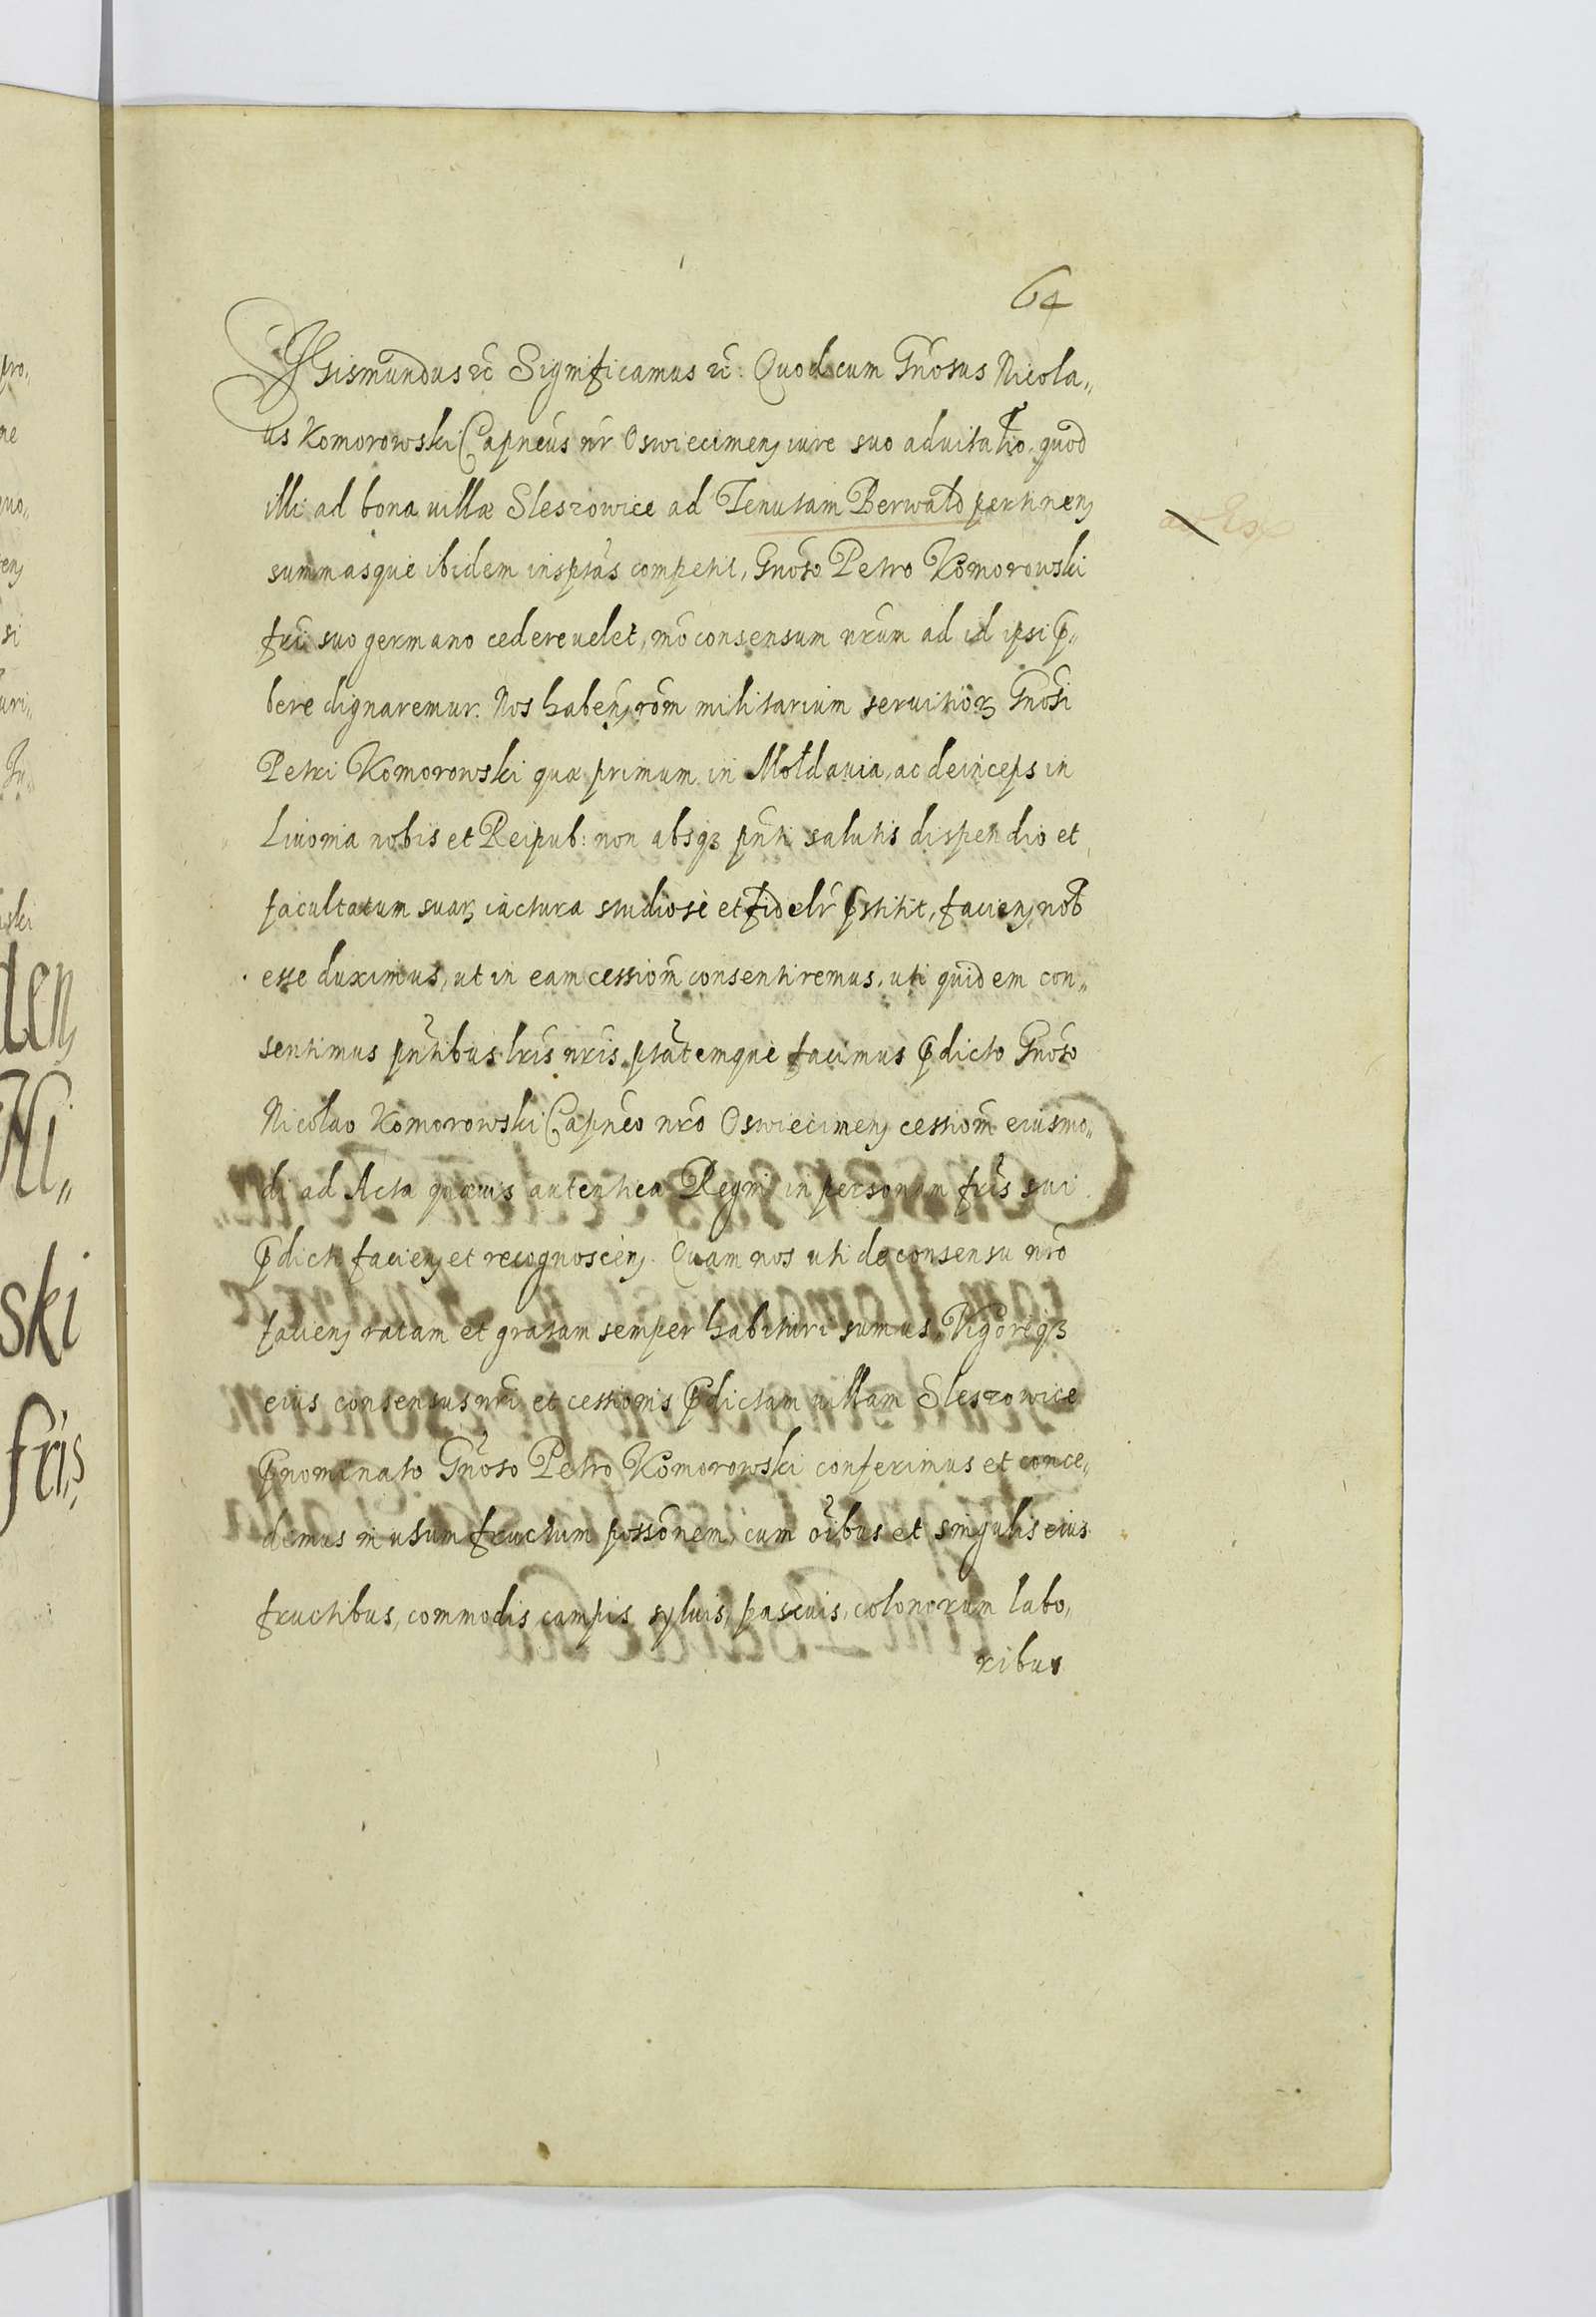 64
Sigismundus etc̃ Significamus etc̃: Quod cum Gñosus Nicola„
us Komorowski Capneus nr̃ Oswiecimen̨ iure suo aduitałio, quod
illi ad bona uillæ Sleszowice ad Tenutam Berwałd pertinen̨
summasque ibidem insp̃tas competit, Gnoso Petro Komorowski
fr̃i suo germano cedere uelet, mõ consensum nr̃um ad id ipsi p̃„
bere dignaremur. Nos haben̨ rõm militarium seruitioꝝ Gnosi
Petri Komorowski quæ primum in Mołdauia, ac deinceps in
Liuonia nobis et Reipub: non absqꝫ pñti salutis dispendio et
facultatum suaꝝ iactura studiosè et fidelr̃ p̃stitit, facien̨ nob̃
esse duximus, ut in eam cessiom̃ consentiremus, uti quidem con„
sentimus pñtibus lr̃is nr̃is, ptãtemque facimus p̃dicto Gnoso
Nicolao Komorowski Capneo nr̃o Oswiecimen̨ cessiom̃ eiusmo„
di ad Acta quæuis autentica Regni in personam fr̃is sui
p̃dicti facien̨ et recognoscen̨. Quam nos uti de consensu nr̃o
facien̨ ratam et gratam semper habituri sumus, Vigoreqꝫ
eius consensus nr̃i et cessionis p̃dictam uillam Sleszowice
p̃nominato Gñoso Petro Komorowski conferimus et conce„
demus in usum fructum possõnem, cum oĩbus et singulis eius
fructibus, commodis, campis, syluis, pascuis, colonorum labo„
ribus